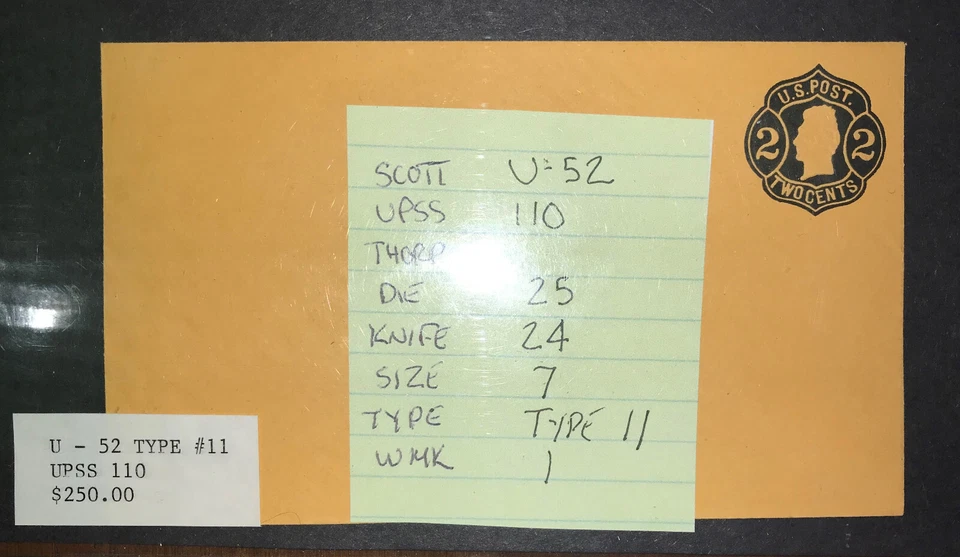 U.S. POST.
2 2
TWO CENTS
SCOTT U-52
UPSS 110
THORP
DIE 25
KNIFE 24
SIZE 7
TYPE TYPE 11
WMK 1
U - 52 TYPE #11
UPSS 110
$250.00